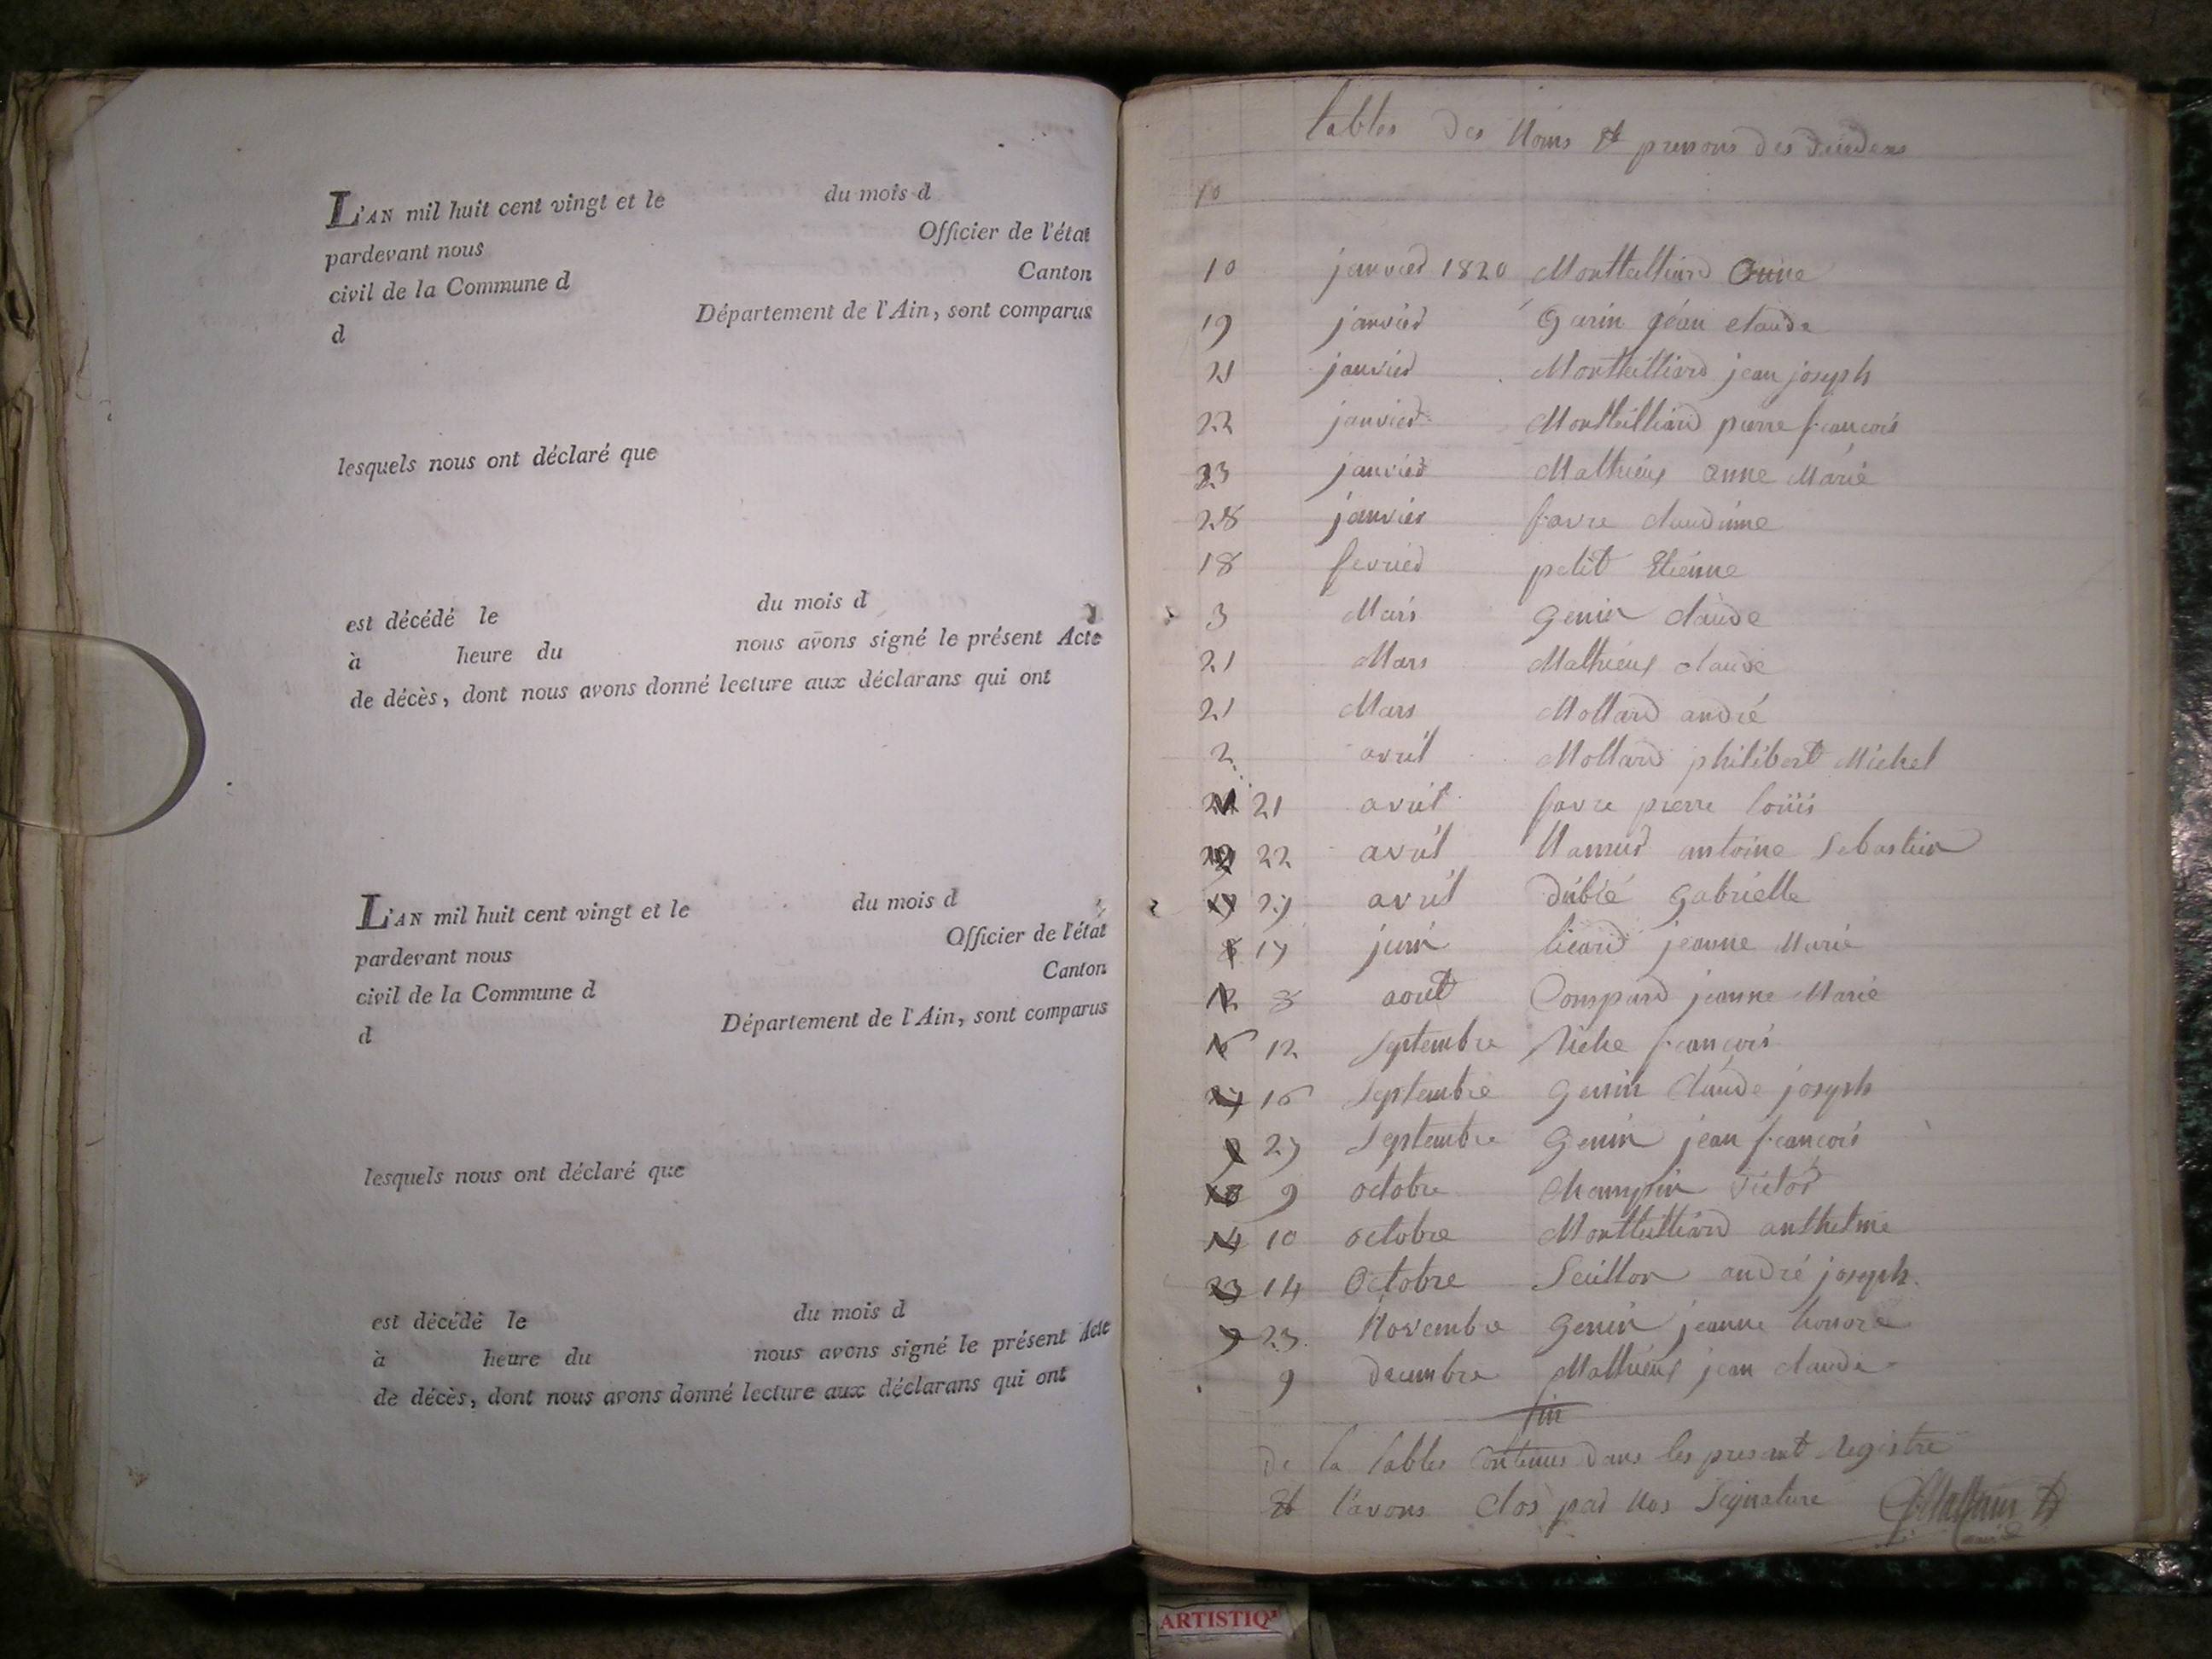 L'AN mil huit cent vingt et le du mois d
pardevant nous Officier de l'état
civil de la Commune d Canton
d Département de l'Ain, sont comparus
lesquels nous ont déclaré que
est décédé le du mois d
à heure du nous avons signé le présent Acte
de décès, dont nous avons donné lecture aux déclarans qui ont
L'AN mil huit cent vingt et le du mois d
pardevant nous Officier de l'état
civil de la Commune d Canton
d Département de l'Ain, sont comparus
lesquels nous ont déclaré que
est décédé le du mois d
à heure du nous avons signé le présent Acte
de décès, dont nous avons donné lecture aux déclarans qui ont
tables des Noms et prenons des
10
10 janvier 1820 Montteilliard
19 janvier Garin jean claude
21 janvier Montteilliard jean joseph
22 janvier Montteilliard pierre francois
23 janvier Mathieux anne Marie
28 janvier favre claudinne
18 fevrier petit Etienne
3 Mars Genin claude
21 Mars Mathieux claude
21 Mars Mollard andré
2 avril Mollard philibert Michel
21 avril favre pierre loüis
22 avril antoine Sebastien
27 avril Dubié Gabrielle
17 juin licard jeanne Marie
8 aout Compard jeanne Marie
12 Septembre francois
16 Septembre Genin Claude joseph
27 Septembre Genin jean francois
9 octobre Champin Victor
10 octobre Montteilliard anthelme
14 Octobre Seillon andré joseph
23 Novembre Genin jeanne honore
9 decembre Mathieux jean claude
fin
de la tables contenues dans les present registre
Et l'avons Clos par Nos Signature